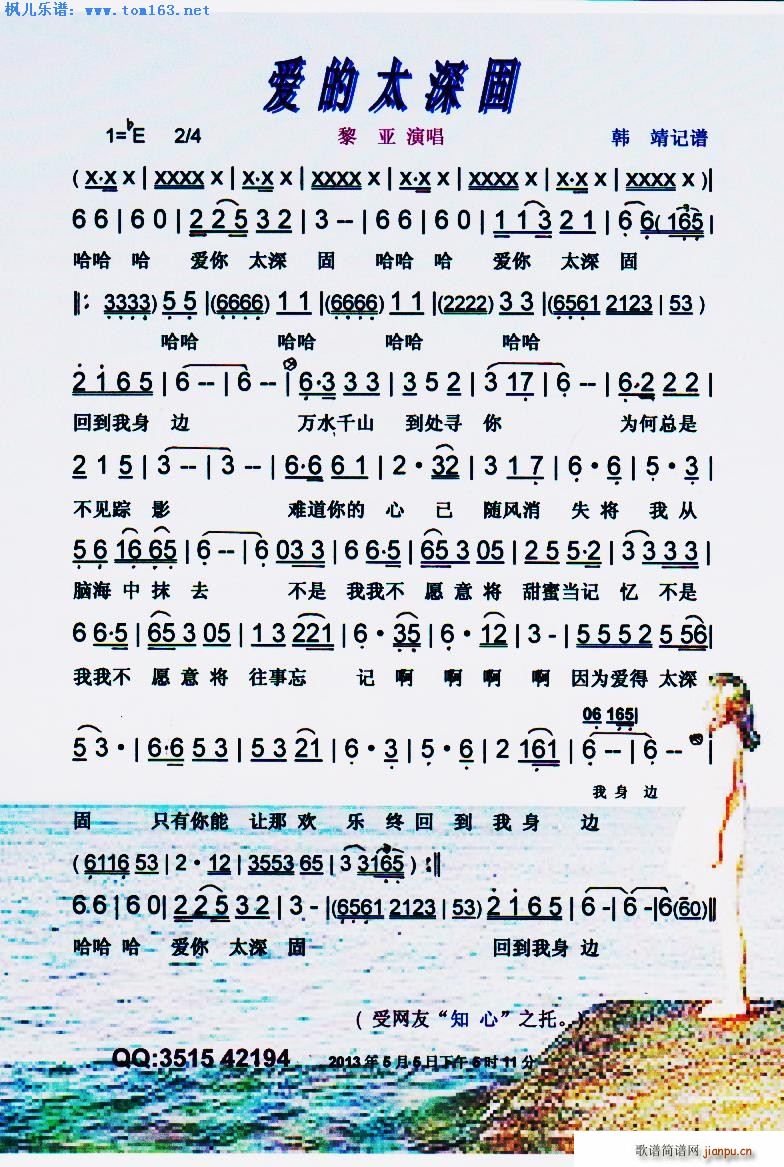 枫儿乐谱：www.tom163.net
爱的太深固
1=♭E 2/4 黎 亚 演唱 韩 靖记谱
( x·x x | xxxx x | x·x x | xxxx x | x·x x | xxxx x )|
6 6 | 6 0 | 2 2 5 3 2 | 3 -- | 6 6 | 6 0 | 1 1 3 2 1 | 6 6 ( 165 |
哈哈 哈 爱你 太深 固 哈哈 哈 爱你 太深 固
‖: 3333) 5 5 |(6666) 1 1 |(6666) 1 1 |(2222) 3 3 |(6561 2123 | 53 )
哈哈 哈哈 哈哈 哈哈
2 1 6 5 | 6 -- | 6 -- | 6·3 3 3 | 3 5 2 | 3 17 | 6 -- | 6·2 2 2 |
回到我身 边 万水千山 到处寻 你 为何总是
2 1 5 | 3 -- | 3 -- | 6·6 6 1 | 2 · 32 | 3 1 7 | 6 · 6 | 5 · 3 |
不见踪 影 难道你的 心 已 随风消 失 将 我 从
5 6 16 65 | 6 -- | 6 03 3 | 6 6·5 | 65 3 05 | 2 5 5·2 | 3 3 3 3 |
脑海 中 抹 去 不是 我 我不 愿 意 将 甜蜜当记 忆 不是
6 6·5 | 65 3 05 | 1 3 221 | 6 · 35 | 6 · 12 | 3 - | 5 5 5 2 5 56 |
我我不 愿 意 将 往事忘 记 啊 啊 啊 啊 因为爱得 太深
06 165 |
5 3 · | 6·6 5 3 | 5 3 21 | 6 · 3 | 5 · 6 | 2 161 | 6 -- | 6 -- |
我 身 边
固 只有你能 让那 欢 乐 终 回 到 我 身 边
( 6116 53 | 2 · 12 | 3553 65 | 3 3165 ) :‖
6 6 | 6 0 | 2 2 5 3 2 | 3 - |(6561 2123 | 53 ) 2 1 6 5 | 6 - | 6 - | 6 (60)‖
哈哈 哈 爱你 太深 固 回到我身 边
( 受网友“知 心”之托。)
QQ:3515 42194 2013 年 5 月 5 日下午 6 时 11 分
歌谱简谱网 jianpu.cn